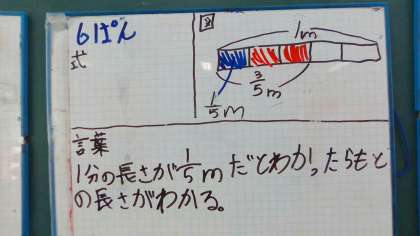 6ぱん
式
図
1m
3/5 m
1/5 m
言葉
1分の長さが1/5mだとわかったらもと
の長さがわかる。